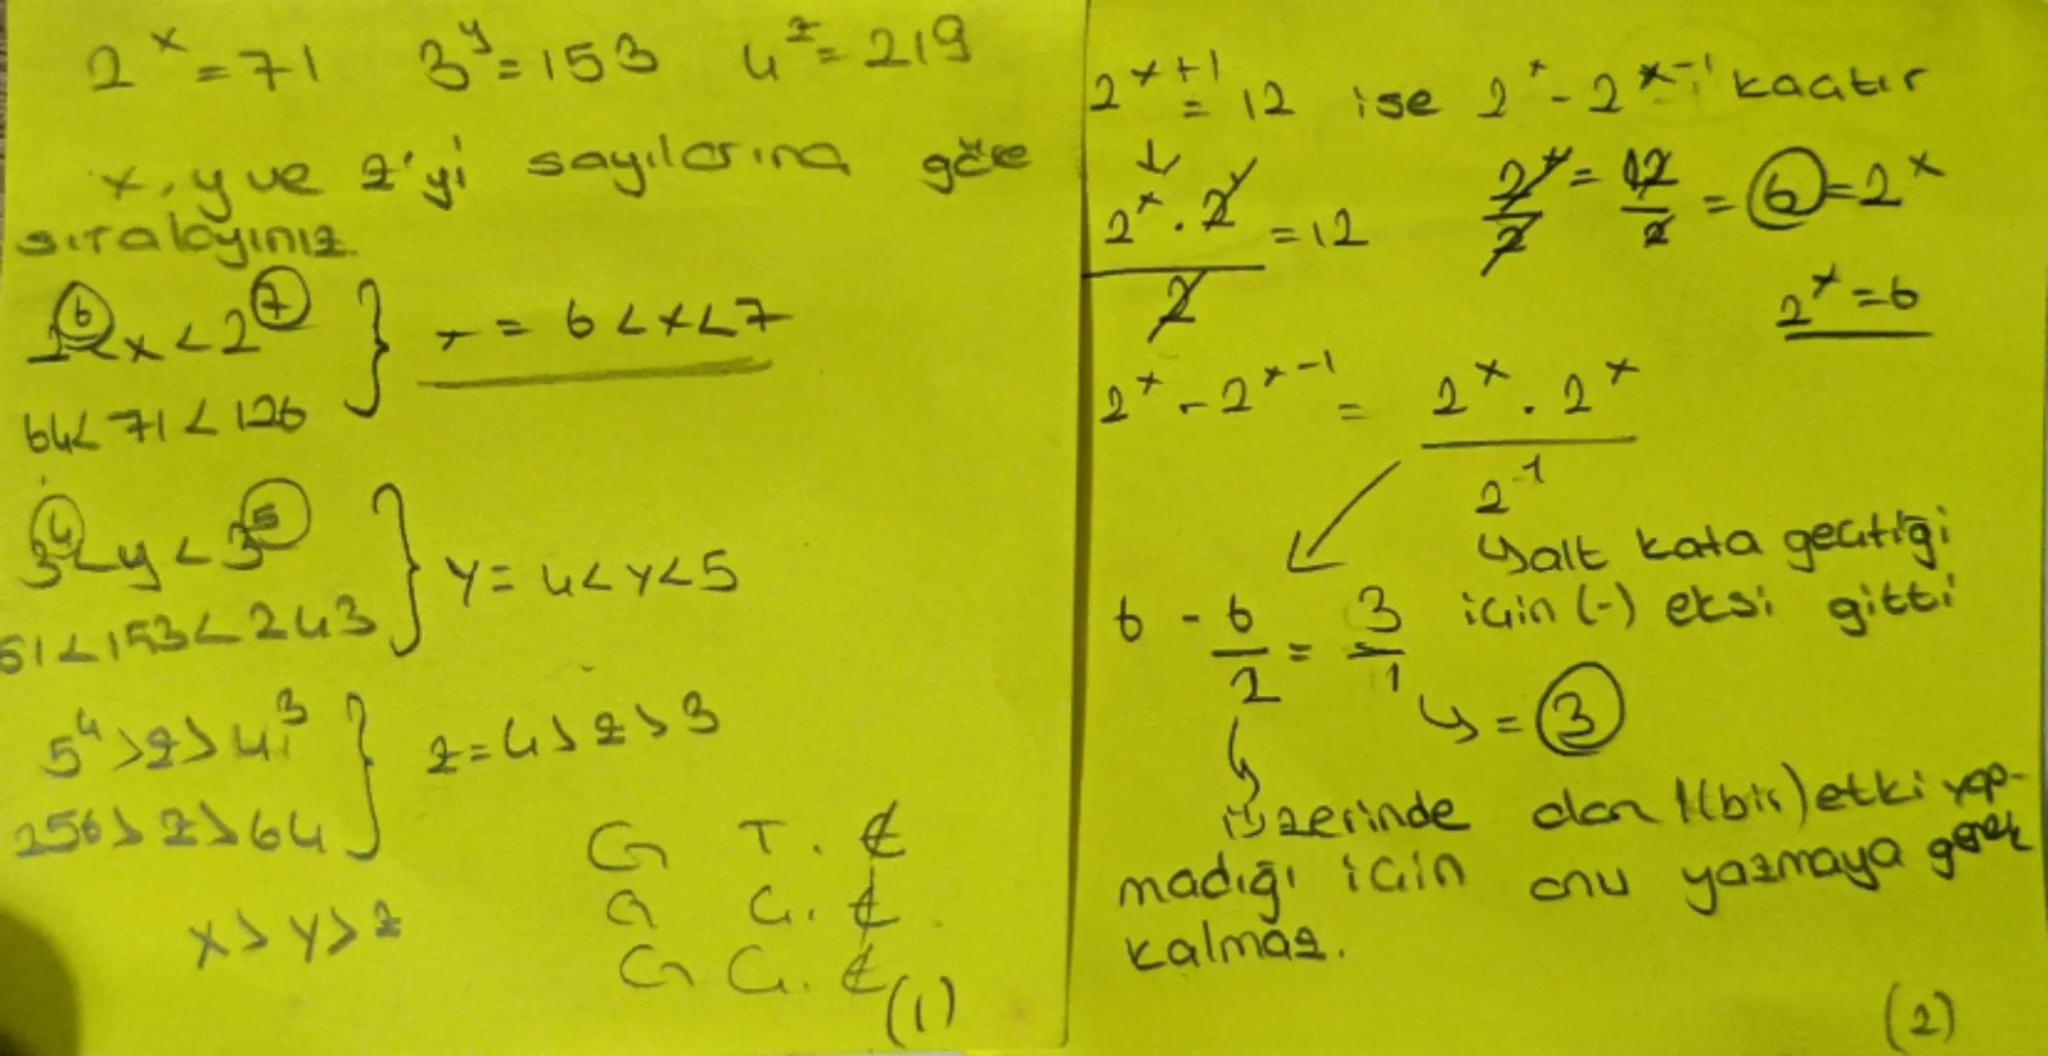 2^x = 71   3^y = 153   4^z = 219
x, y ve z'yi sayılarına göre
sıralayınız.
2^6 < x < 2^7 } x = 6 < x < 7
64 < 71 < 126
3^4 < y < 3^5 } y = 4 < y < 5
51 < 153 < 243
5^4 > z > 4^3 } z = 4 > z > 3
256 > z > 64
G T. Ȼ
G G. Ȼ
x > y > z
G G. Ȼ
(1)
2^x+1 = 12 ise 2^x - 2^x-1 kaçtır
↓
2^x . 2 / 2 = 12   2^x / 2 = 12 / 2 = 6 = 2^x
2^x = 6
2^x - 2^x-1 = 2^x . 2^x / 2^-1
↳ alt kata geçtiği
için (-) eksi gitti
6 - 6/2 = 3/1
↳ = 3
üzerinde dan 1 (bir) etki yap-
madığı için onu yazmaya gerek
kalmaz.
(2)